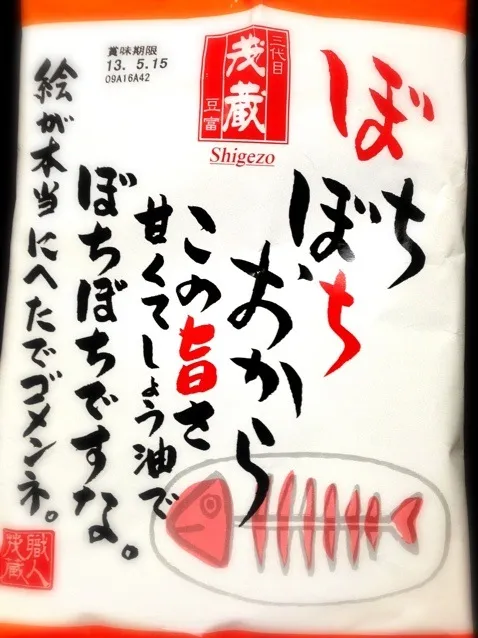 賞味期限
13. 5.15
09A16A42
三代目
茂蔵
豆富
Shigezo
ぼち
ぼち
おから
この旨さ
甘くてしょう油で
ぼちぼちですな。
絵が本当にへたでゴメンネ。
職人
茂蔵